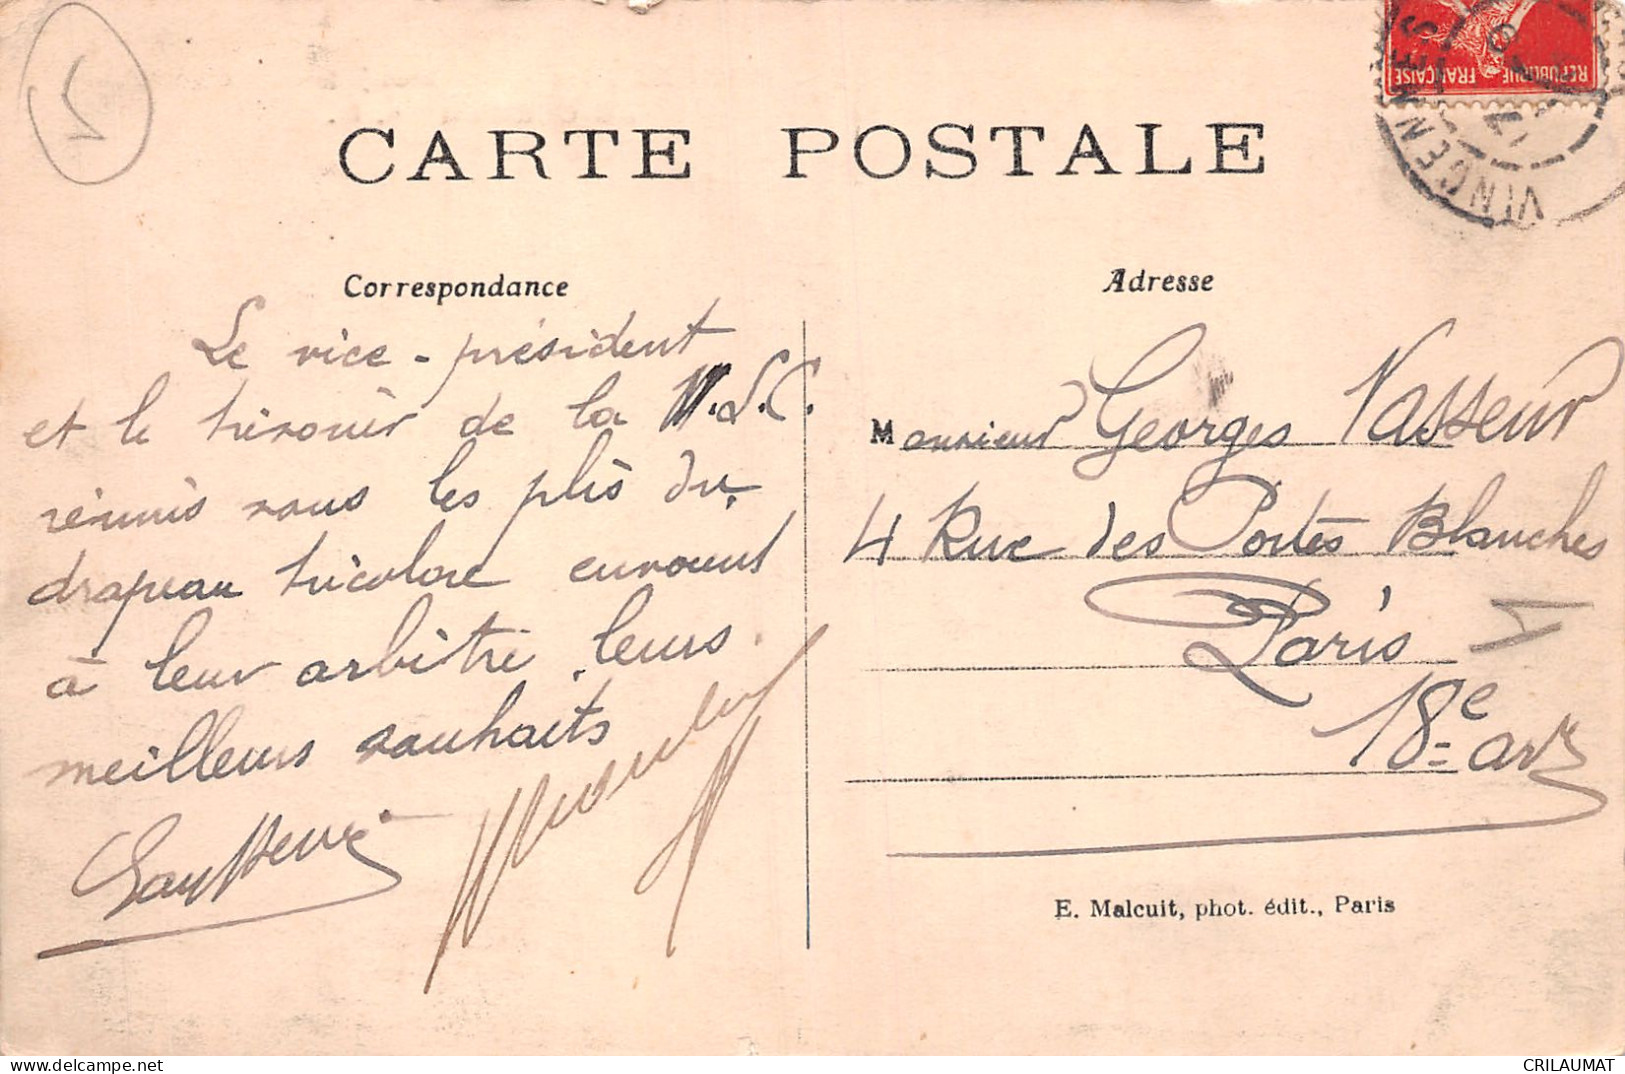 CARTE POSTALE
REPUBLIQUE FRANÇAISE
VINCENNES
Correspondance
Le vice-président
et le trésorier de la .S.C.
réunis sous les plis du
drapeau tricolore envoient
à leur arbitre leurs
meilleurs souhaits
Adresse
Monsieur Georges Vasseur
4 Rue des Portes Blanches
Paris
18e arr
E. Malcuit, phot. édit., Paris
CRILAUMAT